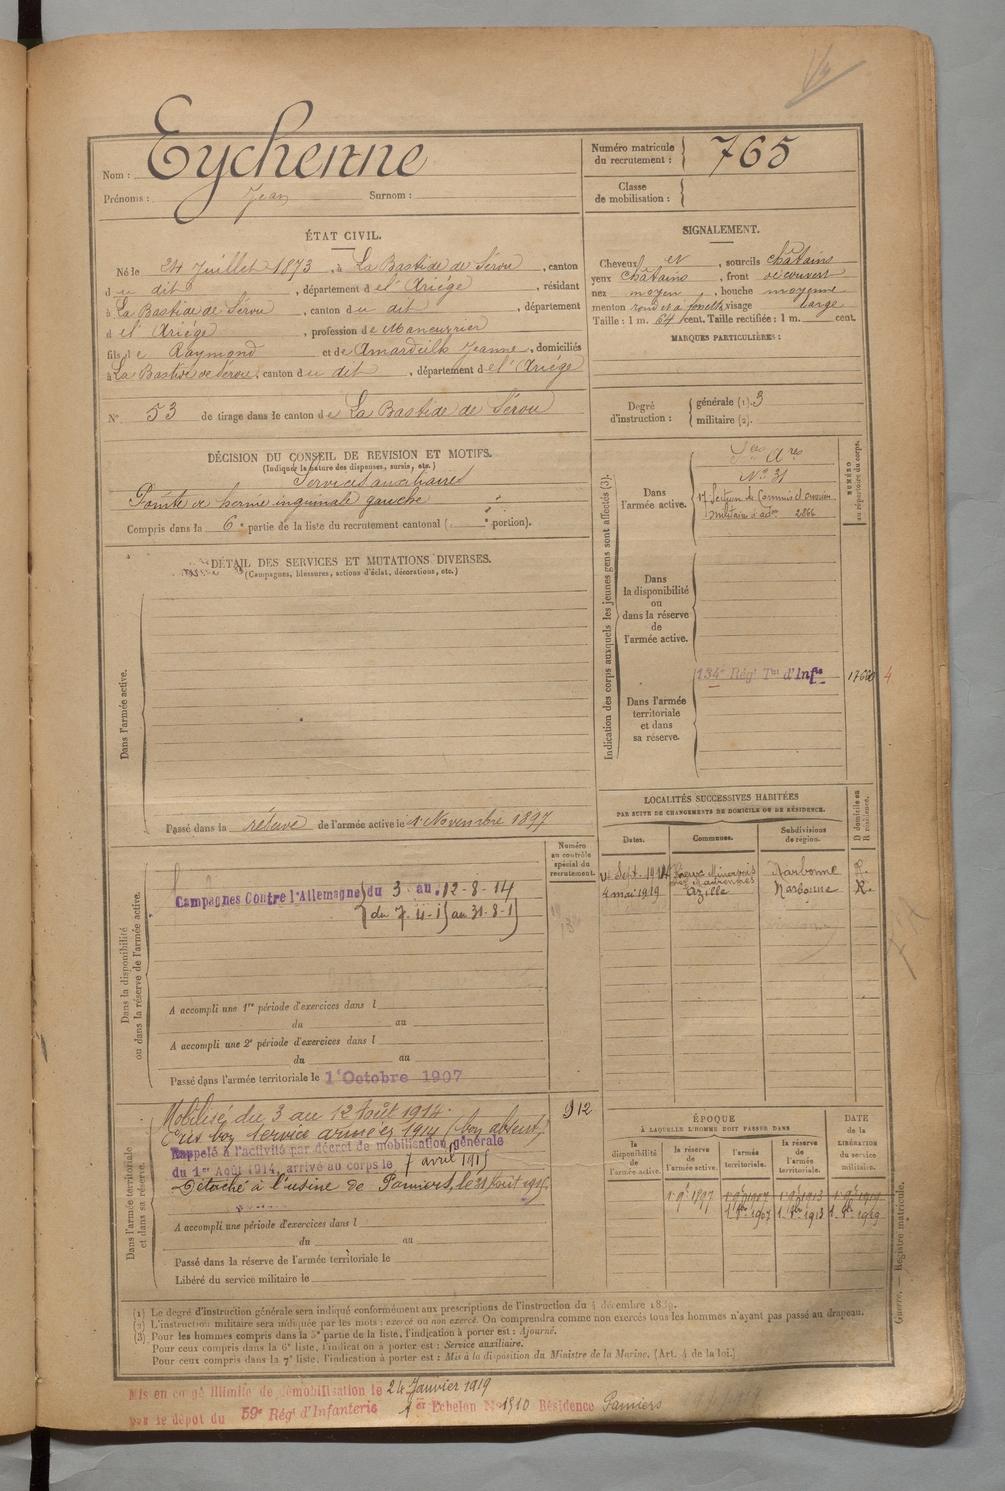 Nom : Eychenne
Prénoms : Jean Surnom :
Numéro matricule du recrutement : 765
Classe de mobilisation :
ÉTAT CIVIL.
Né le 24 Juillet 1873, à La Bastide de Sérou, canton
du dit, département de l'Ariège, résidant
à La Bastide de Sérou, canton du dit, département
d el' Ariège, profession de Manouvrier
fils de Raymond et de Amardeilh Jeanne, domiciliés
à La Bastide de Sérou, canton du dit, département de l'Ariège
N° 53 de tirage dans le canton de La Bastide de Sérou
SIGNALEMENT.
Cheveux et, sourcils châtains
yeux châtains, front découvert
nez moyen, bouche moyenne
menton rond et à fossette visage large
Taille : 1 m. 64 cent. Taille rectifiée : 1 m. cent.
MARQUES PARTICULIÈRES :
Degré d'instruction : générale (1). 3
militaire (2).
DÉCISION DU CONSEIL DE REVISION ET MOTIFS.
(Indiquer la nature des dispenses, sursis, etc.)
Services auxiliaires
Pointe de hernie inguinale gauche
Compris dans la 6e partie de la liste du recrutement cantonal ( portion).
DÉTAIL DES SERVICES ET MUTATIONS DIVERSES.
(Campagnes, blessures, actions d'éclat, décorations, etc.)
Dans l'armée active.
Passé dans la réserve de l'armée active le 1 Novembre 1897
Indication des corps auxquels les jeunes gens sont affectés (3).
NUMÉRO au répertoire du corps.
Dans l'armée active.
N° 31
17 Section de Commis et ouvriers
militaires d'adon 2866
Dans la disponibilité ou dans la réserve de l'armée active.
Dans l'armée territoriale et dans sa réserve.
134e Régt Tal d'Infie
4
LOCALITÉS SUCCESSIVES HABITÉES
PAR SUITE DE CHANGEMENTS DE DOMICILE OU DE RÉSIDENCE.
Dates. Communes. Subdivisions de région. D domicile ou R résidence.
Sept. 1914 Narbonne R.
4 mai 1919 Azille Narbonne R.
Numéro au contrôle spécial du recrutement.
Dans la disponibilité ou dans la réserve de l'armée active.
Campagnes Contre l'Allemagne du 3 au 12-8-14
du 7-4-15 au 31-8-15
A accompli une 1re période d'exercices dans l
du au
A accompli une 2e période d'exercices dans l
du au
Passé dans l'armée territoriale le 1e Octobre 1907
Dans l'armée territoriale et dans sa réserve.
912
Mobilisé du 3 au 12 Août 1914.
Cris bon service armé en 1914 (bon absent)
Rappelé à l'activité par décret de mobilisation générale
du 1er Août 1914, arrivé au corps le 7 avril 1915
Détaché à l'usine de Pamiers, le 31 Août 1915.
A accompli une période d'exercices dans l
du au
Passé dans la réserve de l'armée territoriale le
Libéré du service militaire le
ÉPOQUE
À LAQUELLE L'HOMME DOIT PASSER DANS
la disponibilité de l'armée active. la réserve de l'armée active. l'armée territoriale. la réserve de l'armée territoriale.
DATE de la LIBÉRATION du service militaire.
1 9e 1897 1 9e 1907 1 9e 1913 1 9e 1919
1 8bre 1907 1 8bre 1913 1 8bre 1919
Guerre. — Registre matricule.
(1) Le degré d'instruction générale sera indiqué conformément aux prescriptions de l'instruction du 4 décembre 1889.
(2) L'instruction militaire sera indiquée par les mots : exercé ou non exercé. On comprendra comme non exercés tous les hommes n'ayant pas passé au drapeau.
(3) Pour les hommes compris dans la 5e partie de la liste, l'indication à porter est : Ajourné.
Pour ceux compris dans la 6e liste, l'indication à porter est : Service auxiliaire.
Pour ceux compris dans la 7e liste, l'indication à porter est : Mis à la disposition du Ministre de la Marine. (Art. 4 de la loi.)
Mis en congé illimité de démobilisation le 24 Janvier 1919
par le dépôt du 59e Régt d'Infanterie 1er Echelon N° 1910 Résidence Pamiers